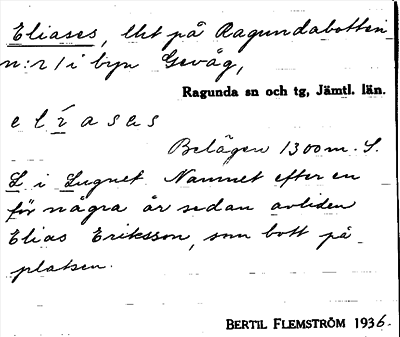 Eliases, lht på Ragundabotten
n:r 1 i byn Gevåg,
Ragunda sn och tg, Jämtl. län.
e l í a s a s
Belägen 1300 m. S.
L i Lugnet. Namnet efter en
för några år sedan avliden
Elias Eriksson, som bott på
platsen.
BERTIL FLEMSTRÖM 1936.